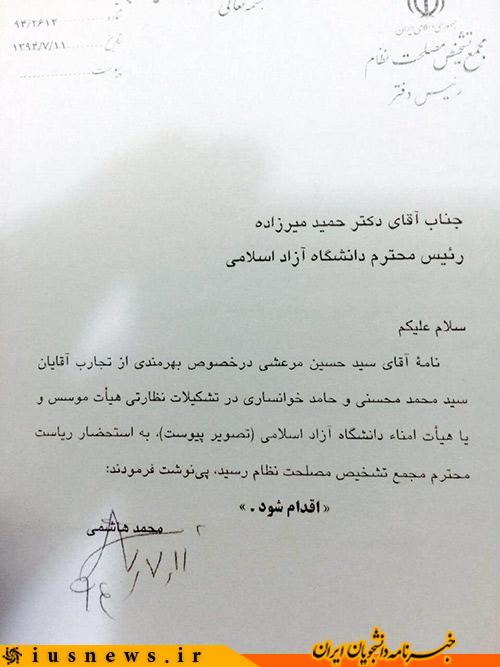 بسمه تعالی
جمهوری اسلامی ایران
مجمع تشخیص مصلحت نظام
رئیس دفتر
شماره ۹۴/۲۶۱۲
تاریخ ۱۳۹۴/۷/۱۱
پیوست
جناب آقای دکتر حمید میرزاده
رئیس محترم دانشگاه آزاد اسلامی
سلام علیکم
نامهٔ آقای سید حسین مرعشی درخصوص بهرمندی از تجارب آقایان
سید محمد محسنی و حامد خوانساری در تشکیلات نظارتی هیأت موسس و
یا هیأت امناء دانشگاه آزاد اسلامی (تصویر پیوست)، به استحضار ریاست
محترم مجمع تشخیص مصلحت نظام رسید، پی‌نوشت فرمودند:
« اقدام شود . »
محمد هاشمی
۹۴/۷/۱۱
خبرنامه دانشجویان ایران
iusnews.ir